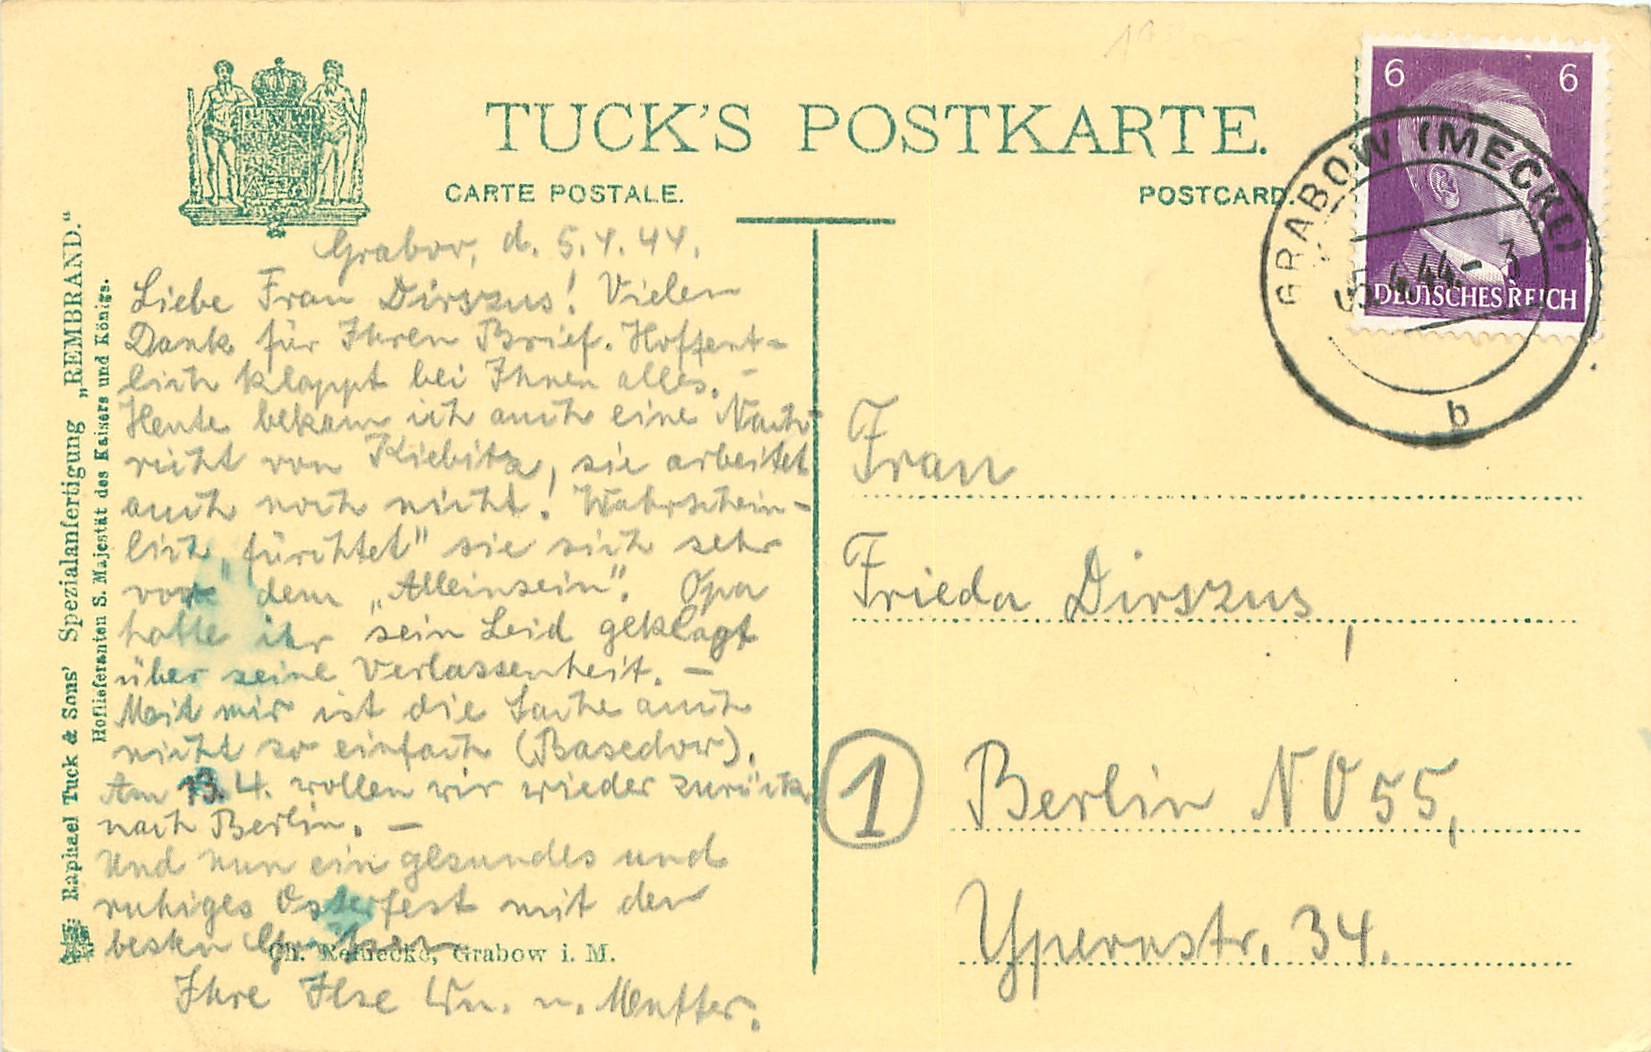 TUCK'S POSTKARTE.
CARTE POSTALE.
POSTCARD.
6 6
DEUTSCHES REICH
GRABOW (MECKL)
5.4.44-3
b
Grabow, d. 5.4.44.
Liebe Frau Dirszus! Vielen
Dank für Ihren Brief. Hoffent-
lich klappt bei Ihnen alles. -
Heute bekam ich auch eine Nach-
richt von Kiebitz, sie arbeitet
auch noch nicht! Wahrschein-
lich „fürchtet" sie sich sehr
vor dem „Alleinsein". Opa
hatte ihr sein Leid geklagt
über seine Verlassenheit. -
Mit mir ist die Sache auch
nicht so einfach (Basedow).
Am 13.4. wollen wir wieder zurück
nach Berlin. -
Und nun ein gesundes und
ruhiges Osterfest mit den
besten Grüßen
Ihre Ilse Wn. u. Mutter.
Frau
Frieda Dirszus,
1 Berlin NO 55,
Ypernstr. 34.
Raphael Tuck & Sons' Spezialanfertigung „REMBRAND."
Hoflieferanten S. Majestät des Kaisers und Königs.
Ch. Reinecke, Grabow i. M.